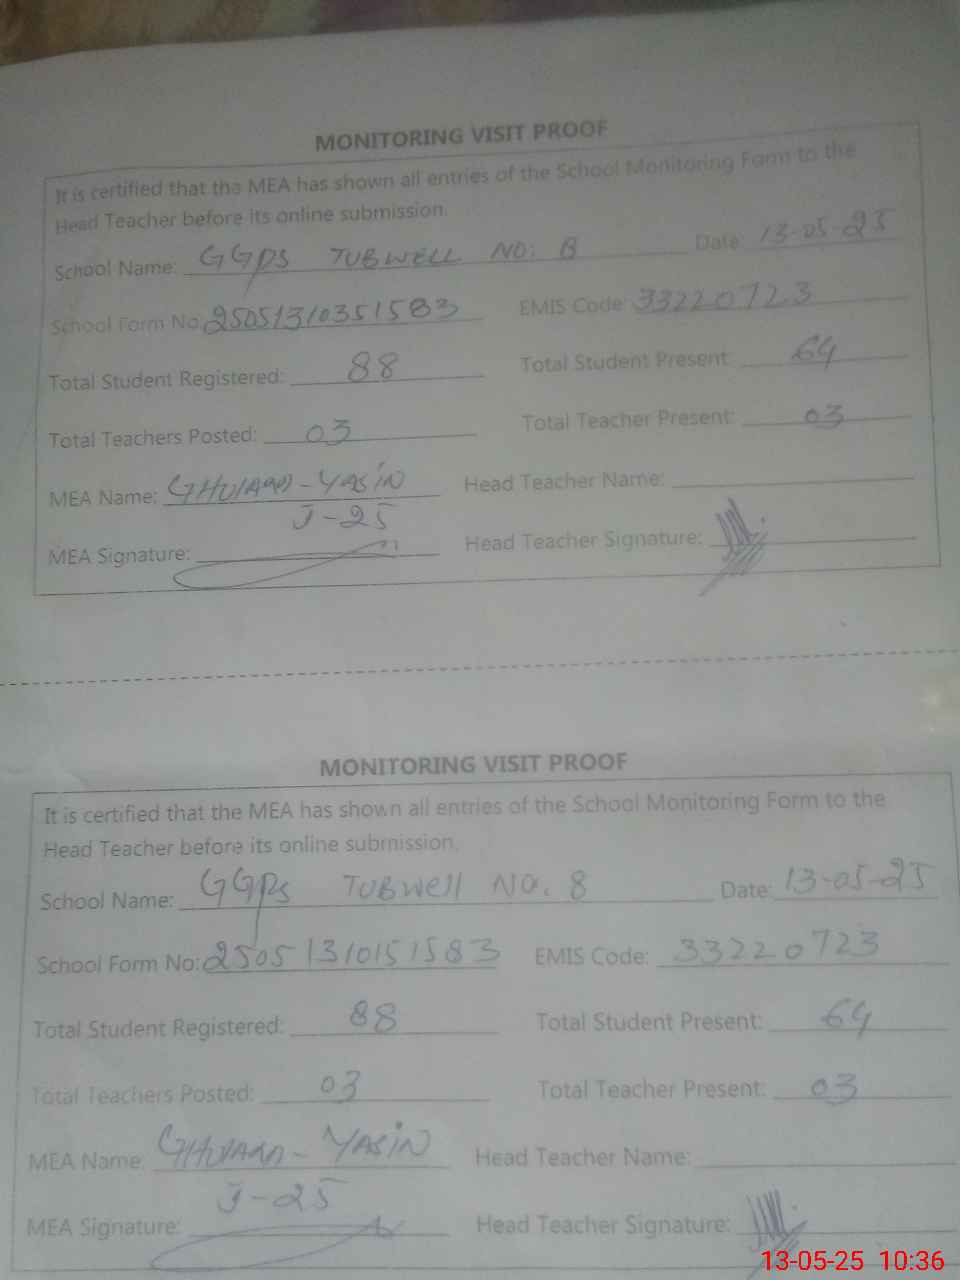 MONITORING VISIT PROOF
It is certified that the MEA has shown all entries of the School Monitoring Form to the
Head Teacher before its online submission.
School Name: GGPS TUBWELL NO: 8 Date: 13-05-25
School Form No: 25051310351583 EMIS Code: 33220723
Total Student Registered: 88 Total Student Present: 64
Total Teachers Posted: 03 Total Teacher Present: 03
MEA Name: GHULAM-YASIN Head Teacher Name:
J-25
MEA Signature: Head Teacher Signature:
MONITORING VISIT PROOF
It is certified that the MEA has shown all entries of the School Monitoring Form to the
Head Teacher before its online submission.
School Name: GGPS TUBWell NO. 8 Date: 13-05-25
School Form No: 25051310151583 EMIS Code: 33220723
Total Student Registered: 88 Total Student Present: 64
Total Teachers Posted: 03 Total Teacher Present: 03
MEA Name: GHULAM-YASIN Head Teacher Name:
J-25
MEA Signature: Head Teacher Signature:
13-05-25 10:36